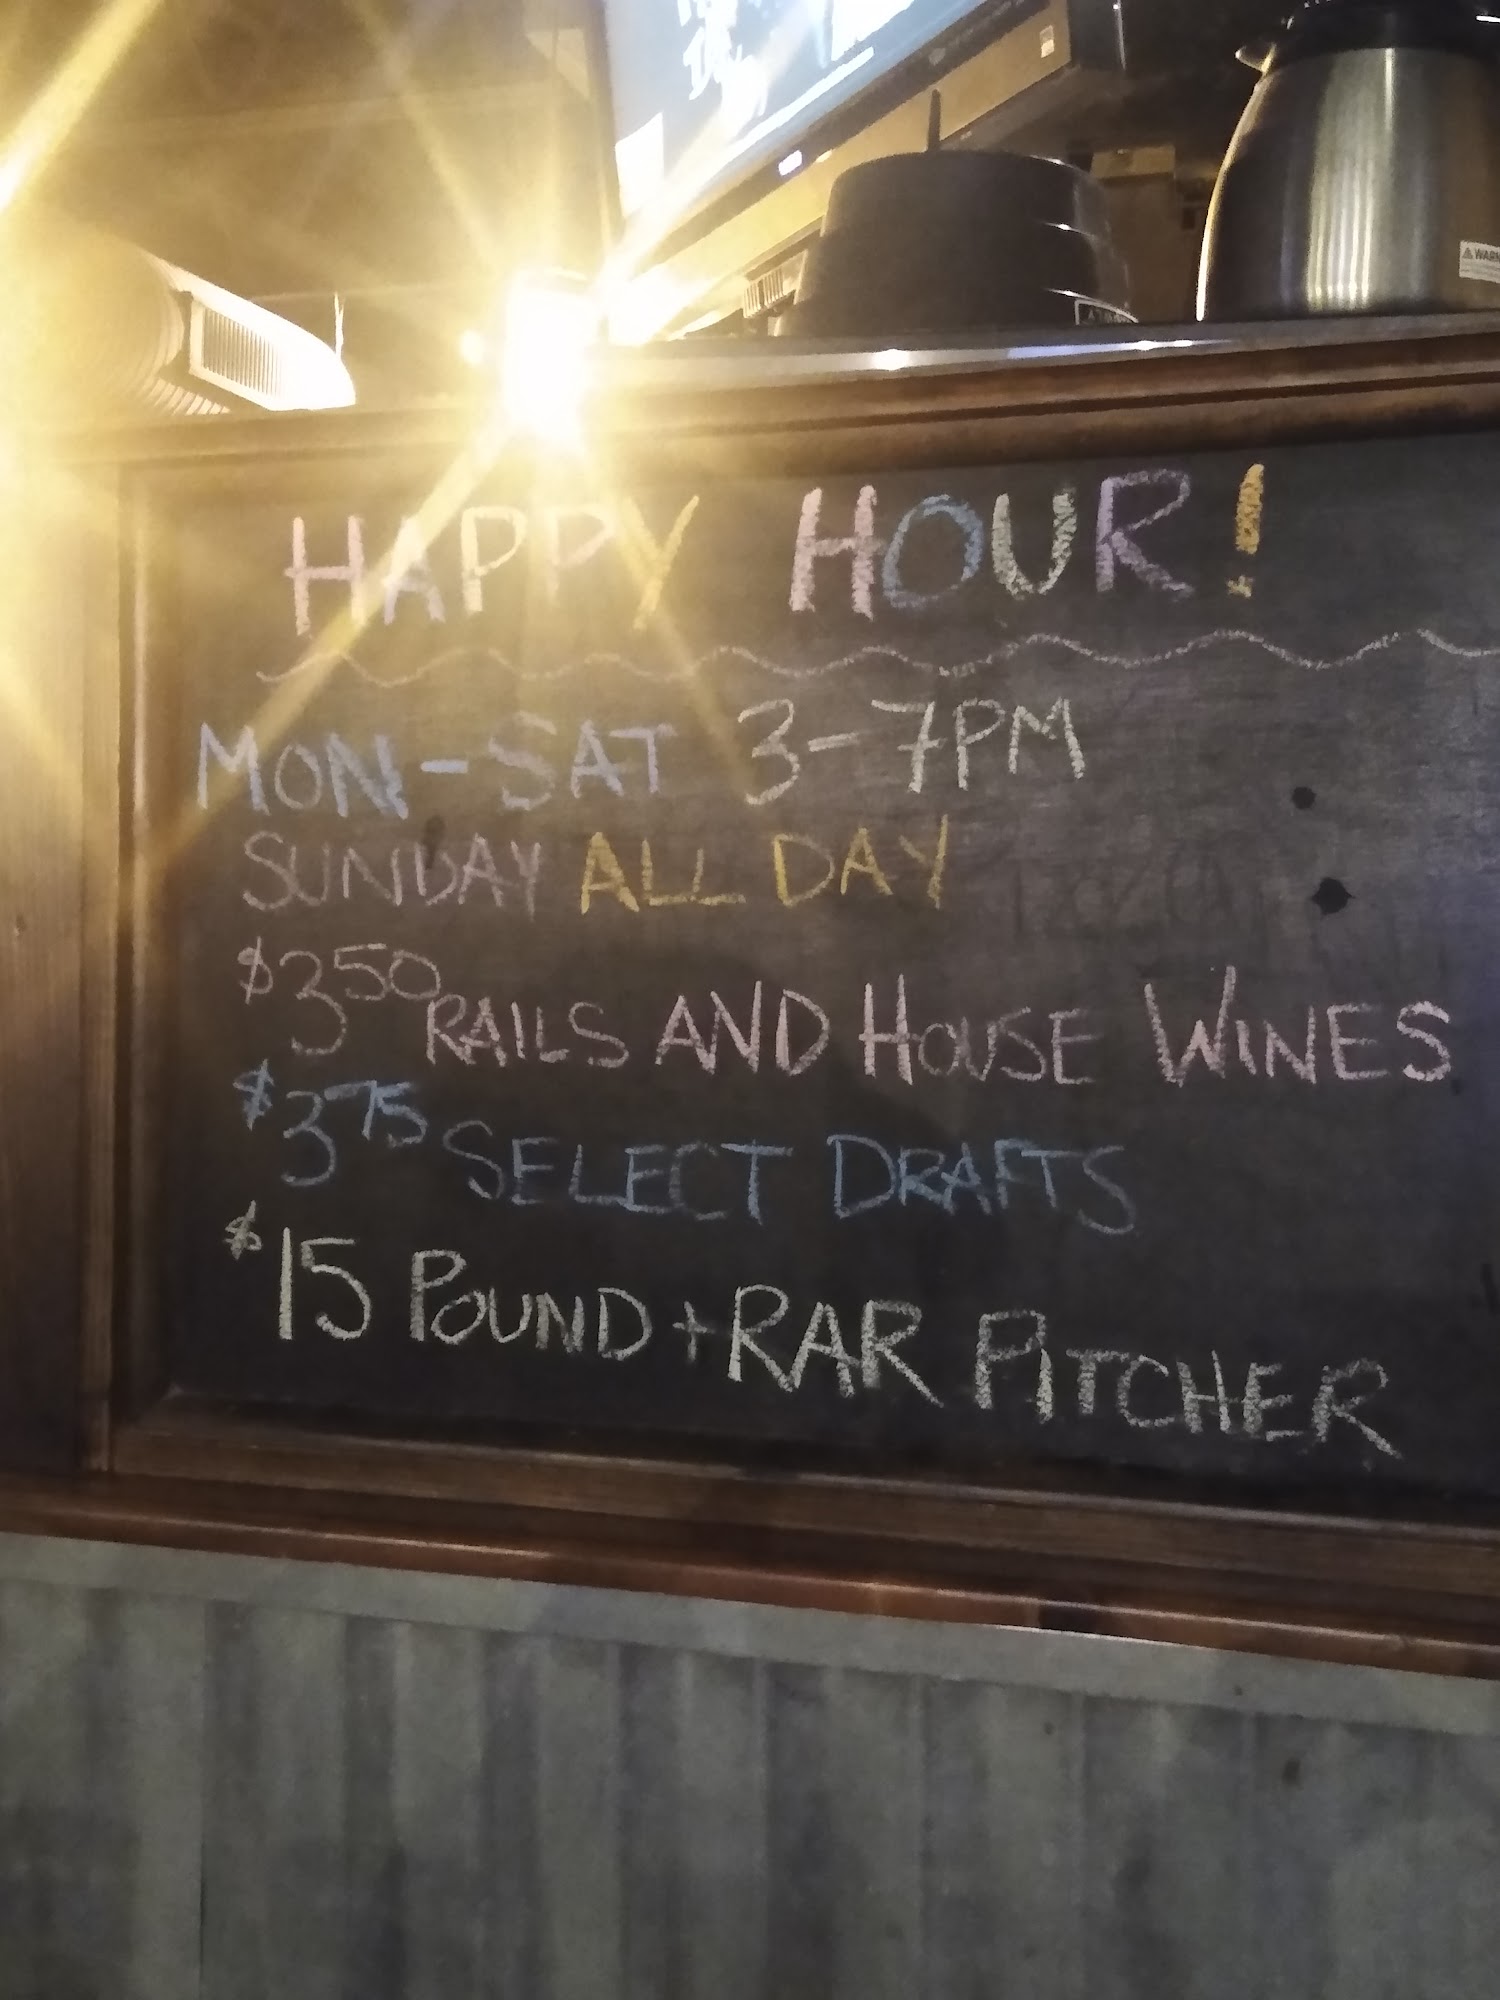 HAPPY HOUR!
MON-SAT 3-7PM
SUNDAY ALL DAY
$3.50 RAILS AND HOUSE WINES
$3.75 SELECT DRAFTS
$15 POUND + RAR PITCHER